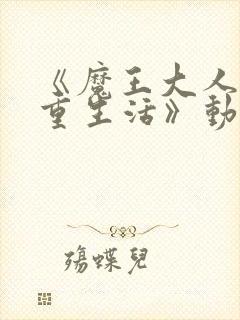 《魔王大人
重生活》動
殤蝶兒